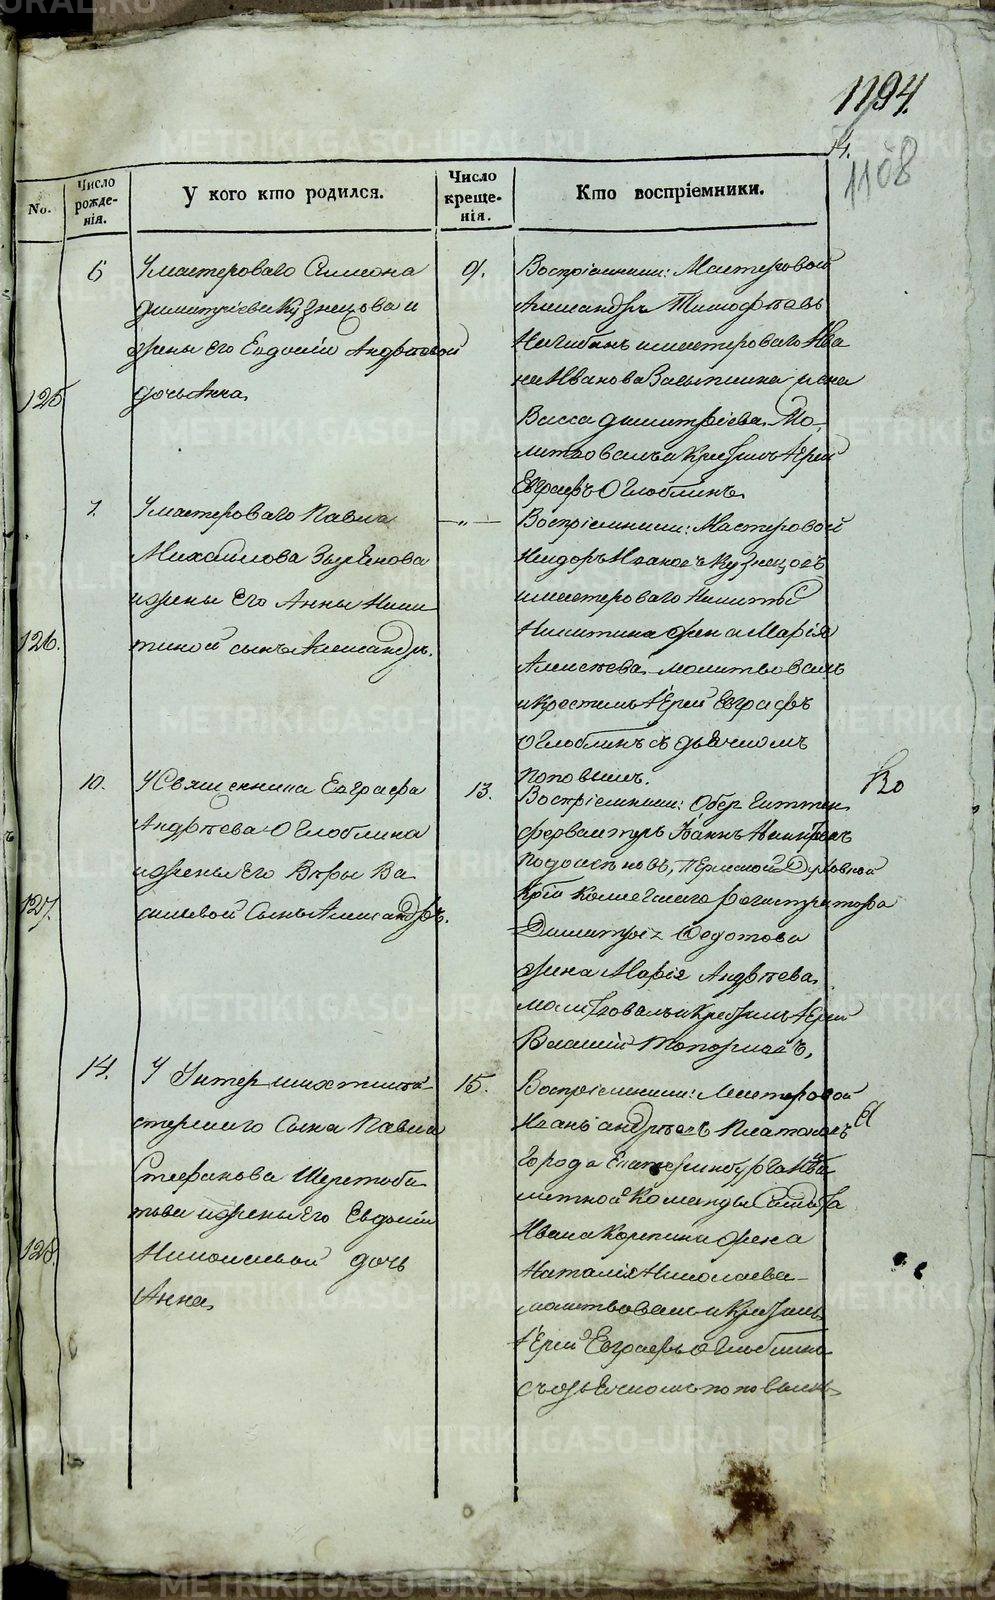 1194.
1108
No.
Число рожде-нія.
У кого кто родился.
Число креще-нія.
Кто воспріемники.
125
6
Умастероваго Симеона
Димитріева Кузнецова и
жены его Евдокіи Андрѣевой
дочь Анна.
9.
Воспріемники: Мастеровой
Александръ Тимофѣевъ
Нагибинъ имастероваго Ива
на Иванова жена
Васса Димитріева. Мо-
литвовалъ и крестилъ Іерей
Евграфъ Оглоблинъ.
126.
7.
Умастероваго Павла
Михайлова Зырянова
ижены его Анны Ники
тиной сынъ Александръ.
— „ —
Воспріемники: Мастеровой
Исидоръ Ивановъ Кузнецовъ
имастероваго Никиты
Никитина жена Марія
Алексѣева молитвовалъ
икрестилъ Іерей Евграфъ
Оглоблинъ съ дьячкомъ
Поповымъ.
127.
10.
УСвященника Евграфа
Андрѣева Оглоблина
ижены его Вѣры Ва
сильевой Сынъ Александръ.
13.
Воспріемники: Обер Гиттен
фервалтеръ Іоаннъ
Пермской Духовной
Коллегскаго регистратора
Димитрія Федотова
жена Марія Андрѣева.
молитвовалъ и крестилъ Іерей
Василій Топорковъ.
128.
14.
У Унтер шихтмей
стерскаго Сына Павла
Стефанова
ижены его Евдокіи
Николаевой дочь
Анна.
15.
Воспріемники: Мастеровой
Иванъ Андрѣевъ Платоновъ
города Екатеринбурга
команды Солдата
Ивана жена
Наталія Николаева
молитвовалъ и крестилъ
Іерей Евграфъ Оглоблинъ
съ дьячкомъ поповымъ.
METRIKI.GASO-URAL.RU